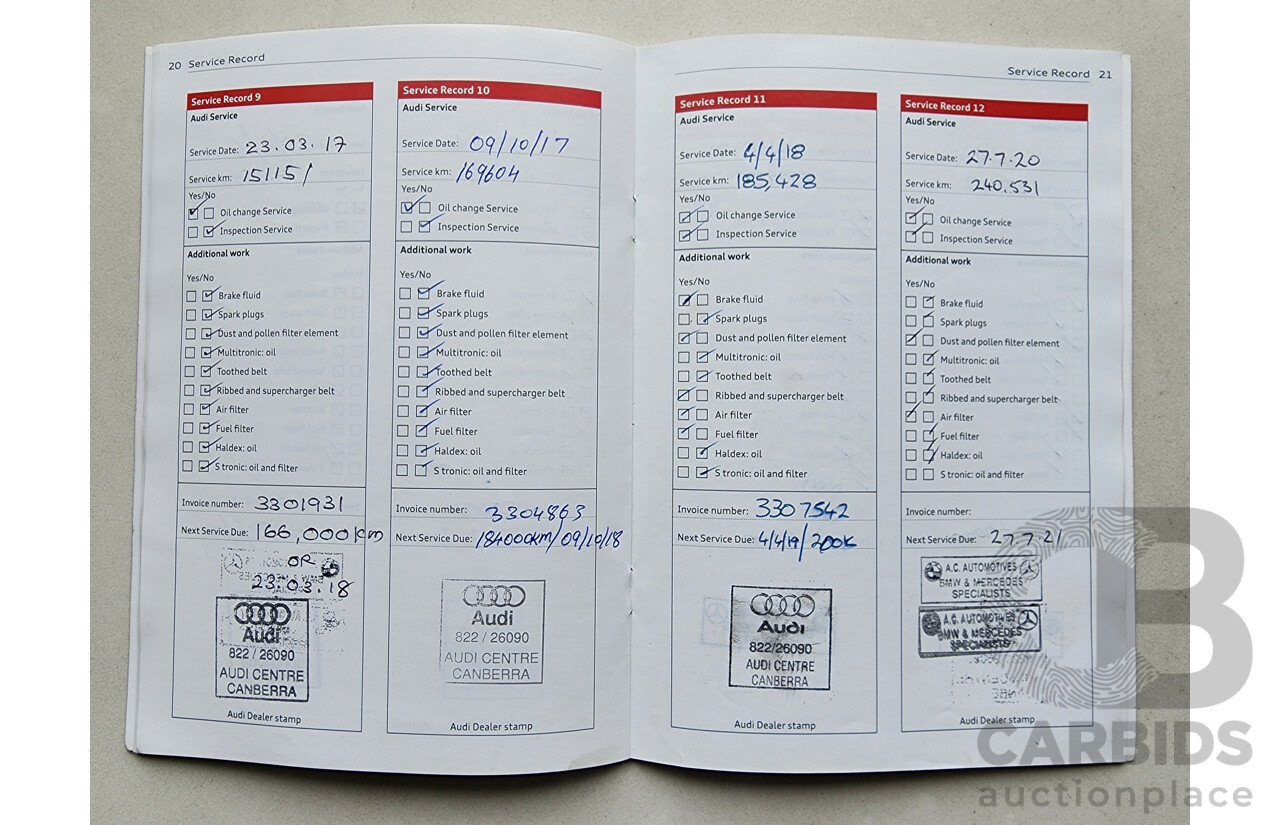 20 Service Record
Service Record 9
Audi Service
Service Date: 23.03.17
Service km: 151151
Yes/No
Oil change Service
Inspection Service
Additional work
Yes/No
Brake fluid
Spark plugs
Dust and pollen filter element
Multitronic: oil
Toothed belt
Ribbed and supercharger belt
Air filter
Fuel filter
Haldex: oil
S tronic: oil and filter
Invoice number: 3301931
Next Service Due: 166,000km
OR
23.03.18
Audi
822 / 26090
AUDI CENTRE
CANBERRA
Audi Dealer stamp
Service Record 10
Audi Service
Service Date: 09/10/17
Service km: 169604
Yes/No
Oil change Service
Inspection Service
Additional work
Yes/No
Brake fluid
Spark plugs
Dust and pollen filter element
Multitronic: oil
Toothed belt
Ribbed and supercharger belt
Air filter
Fuel filter
Haldex: oil
S tronic: oil and filter
Invoice number: 3304863
Next Service Due: 184000km/09/10/18
Audi
822 / 26090
AUDI CENTRE
CANBERRA
Audi Dealer stamp
Service Record 21
Service Record 11
Audi Service
Service Date: 4/4/18
Service km: 185,428
Yes/No
Oil change Service
Inspection Service
Additional work
Yes/No
Brake fluid
Spark plugs
Dust and pollen filter element
Multitronic: oil
Toothed belt
Ribbed and supercharger belt
Air filter
Fuel filter
Haldex: oil
S tronic: oil and filter
Invoice number: 3307542
Next Service Due: 4/4/19/200K
Audi
822 / 26090
AUDI CENTRE
CANBERRA
Audi Dealer stamp
Service Record 12
Audi Service
Service Date: 27.7.20
Service km: 240.531
Yes/No
Oil change Service
Inspection Service
Additional work
Yes/No
Brake fluid
Spark plugs
Dust and pollen filter element
Multitronic: oil
Toothed belt
Ribbed and supercharger belt
Air filter
Fuel filter
Haldex: oil
S tronic: oil and filter
Invoice number:
Next Service Due: 27.7.21
A.C. AUTOMOTIVES
BMW & MERCEDES
SPECIALISTS
A.C. AUTOMOTIVES
BMW & MERCEDES
SPECIALISTS
Audi Dealer stamp
CARBIDS
auctionplace